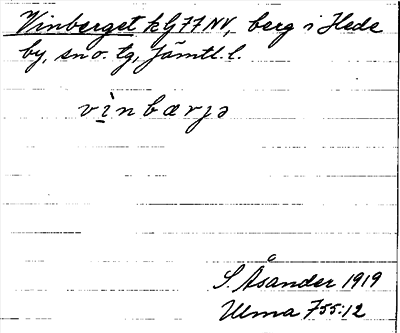 Vinberget kG77NV, berg i Hede
by, sn o. tg, Jämtl. l.
vìnbærjə
S. Åsander 1919
Ulma 755:12